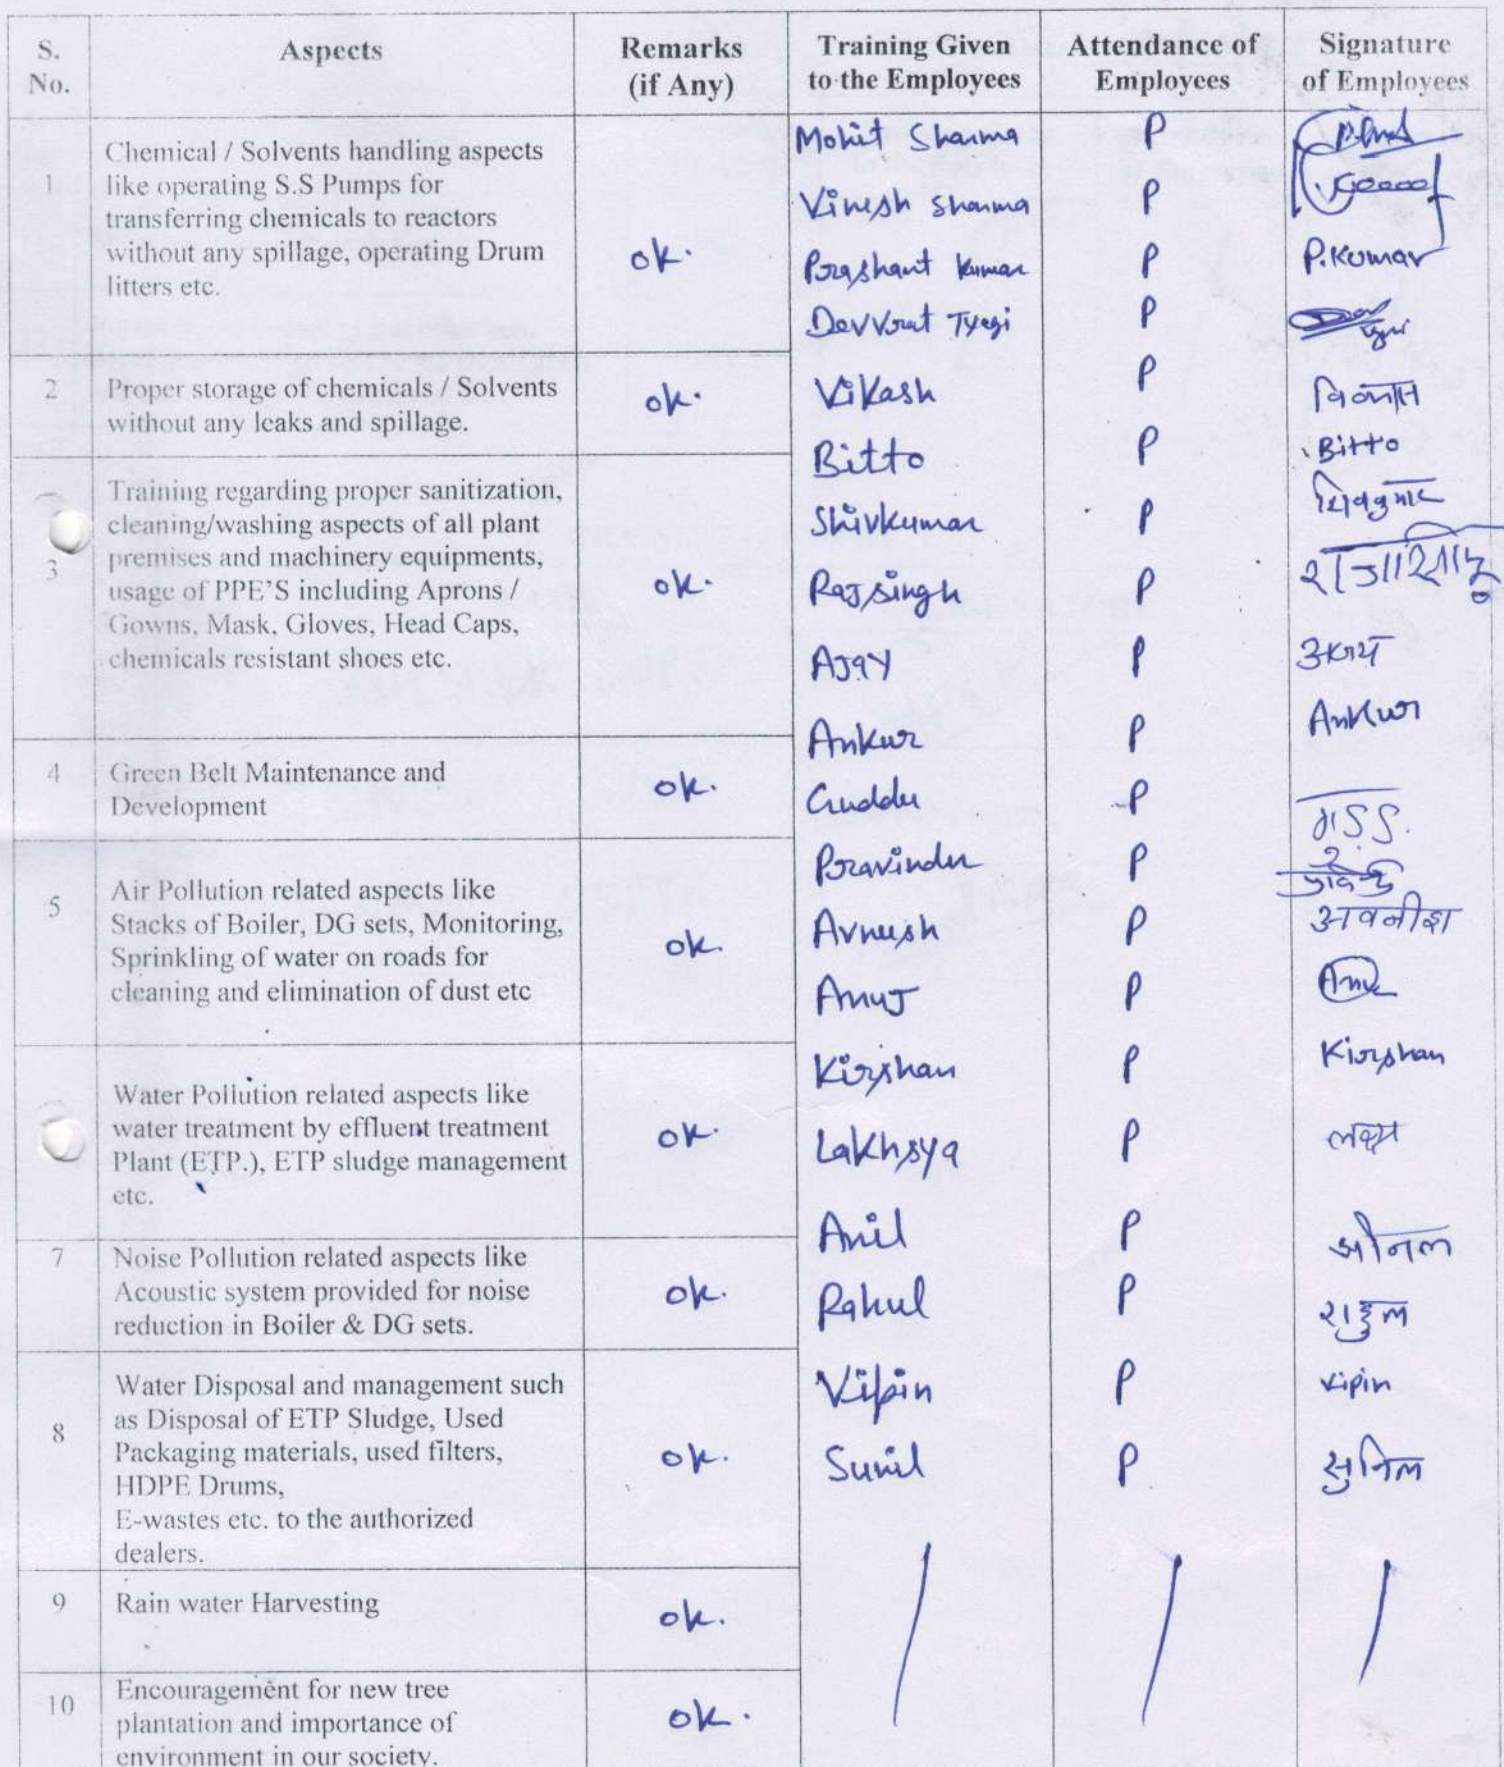 S. No.
Aspects
Remarks (if Any)
Training Given to the Employees
Attendance of Employees
Signature of Employees
1
Chemical / Solvents handling aspects
like operating S.S Pumps for
transferring chemicals to reactors
without any spillage, operating Drum
litters etc.
ok.
2
Proper storage of chemicals / Solvents
without any leaks and spillage.
ok.
3
Training regarding proper sanitization,
cleaning/washing aspects of all plant
premises and machinery equipments,
usage of PPE'S including Aprons /
Gowns, Mask, Gloves, Head Caps,
chemicals resistant shoes etc.
ok.
4
Green Belt Maintenance and
Development
ok.
5
Air Pollution related aspects like
Stacks of Boiler, DG sets, Monitoring,
Sprinkling of water on roads for
cleaning and elimination of dust etc
ok.
Water Pollution related aspects like
water treatment by effluent treatment
Plant (ETP.), ETP sludge management
etc.
ok.
7
Noise Pollution related aspects like
Acoustic system provided for noise
reduction in Boiler & DG sets.
ok.
8
Water Disposal and management such
as Disposal of ETP Sludge, Used
Packaging materials, used filters,
HDPE Drums,
E-wastes etc. to the authorized
dealers.
ok.
9
Rain water Harvesting
ok.
10
Encouragement for new tree
plantation and importance of
environment in our society.
ok.
Mohit Sharma P
Vinesh Sharma P
Prashant Kumar P P.Kumar
Devvrat Tyagi P
Vikash P विकास
Bitto P Bitto
Shivkumar P शिवकुमार
Rajsingh P
Ajay P अजय
Ankur P Ankur
Guddu P
Pravinder P
Avneesh P अवनीश
Anuj P
Kirshan P Kirshan
Lakhsya P लक्ष्य
Anil P
Rahul P राहुल
Vipin P Vipin
Sunil P सुनिल